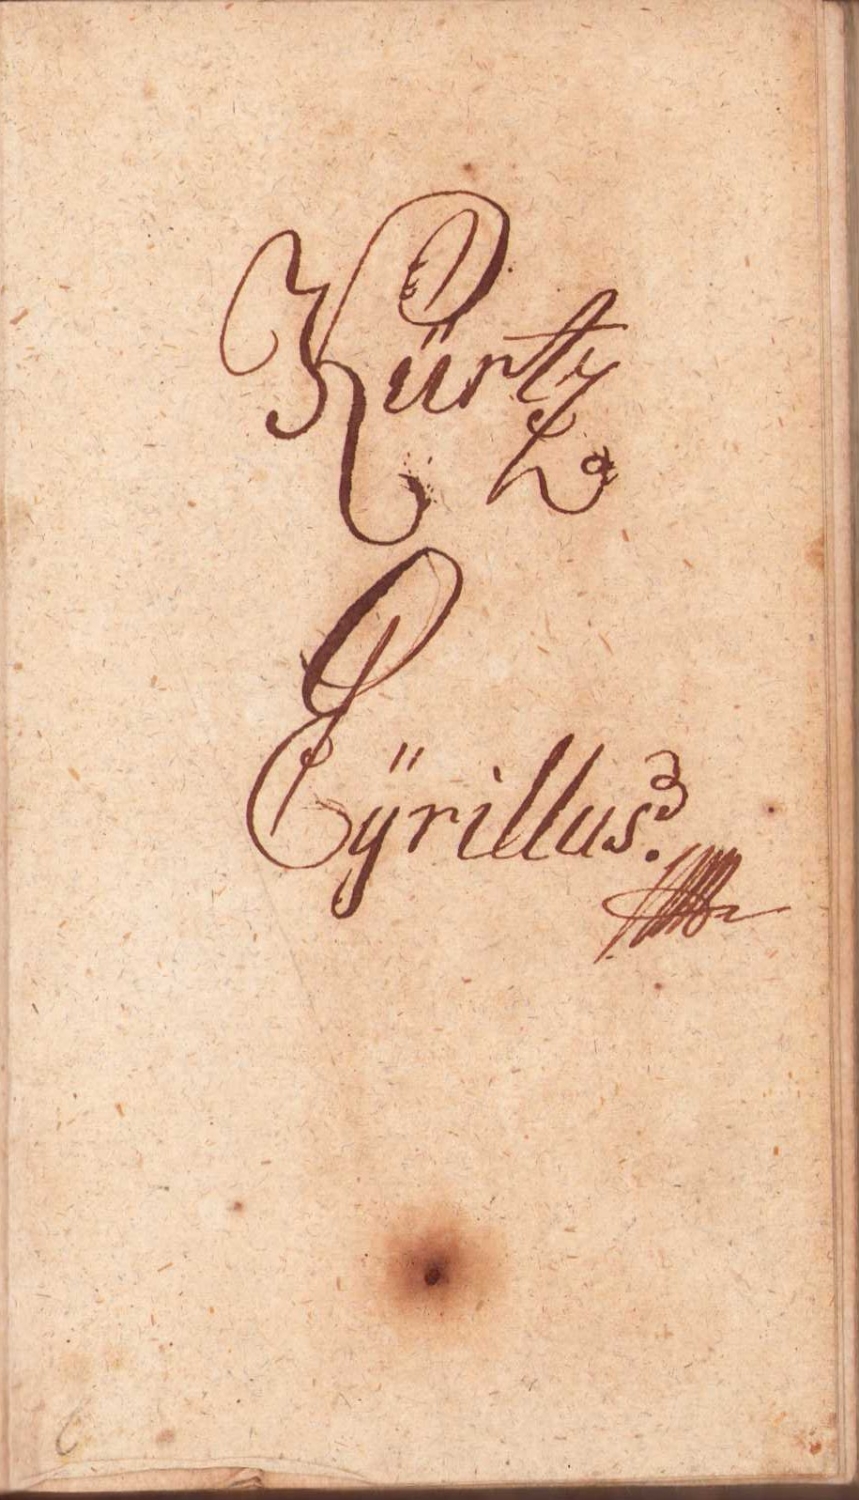 Kürtz
Cÿrillus.